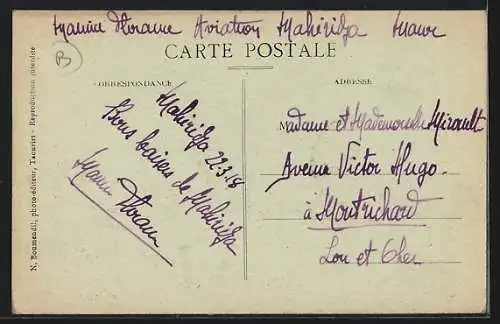 Aviation Mahiridja Maroc
CARTE POSTALE
B
CORRESPONDANCE
ADRESSE
Mahiridja
22-3-18
Bons baisers de Mahiridja
Madame et Mademoiselle Mirault
Avenue Victor Hugo.
à Montrichard
Loir et Cher
N. Boumendil, photo-éditeur, Taourirt - Reproduction interdite